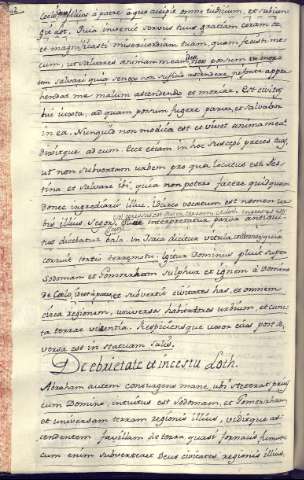 filius a patre a quo accepit omne iudicium, et subiun
git ei dot. Quia invenit servus tuus gratiam coram te
et magnificasti misericordiam tuam, quam fecisti me
cum, ut salvares animam meam, nec possum in monte
salvari quia senex non sufficio ascendere, ne forte appre
hendat me malum ascendendo et moriar. Est civitas
hic iuxta, ad quam possum fugere parva, et salvabor
in ea. Nunquid non modica est et vivet anima mea.
Dixitque ad eum. Ecce etiam in hoc suscepi preces tuas,
ut non subvertam urbem pro qua locutus es. Fes
tina et salvare ibi, quia non potero facere quidquam
donec ingrediaris illuc. Idcirco vocatum est nomen ur
bis illius Segor. Quae interpretatur parva antiqui
tus dicebatur bala. in Isaia dicitur vitula conternans quia
corruit tertio terremotu. Igitur Dominus pluit super
Sodomam et Gomorrham sulphur et ignem a Domino
de Coelo, et subvertit civitates has, et omnem
circa regionem, universos habitatores urbium, et cunc
ta terrae virentia. Respiciensque uxor eius post se,
versa est in statuam salis.
De ebrietate et incestu Loth.
Abraham autem consurgens mane, ubi steterat prius
cum Domino, intuitus est Sodomam, et Gomorrham
et universam terram regionis illius, viditque as
cendentem favillam de terra, quasi fornacis fumum
cum enim subverteret Deus civitates regionis illius,